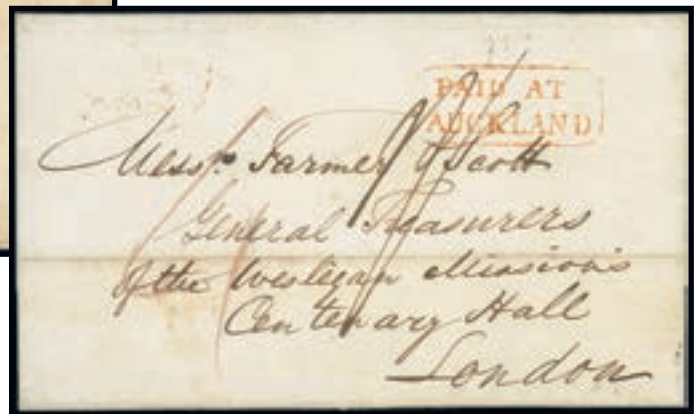 PAID AT
AUCKLAND
Messrs. Farmer & Scott
General Treasurers
of the Wesleyan Missions
Centenary Hall
London